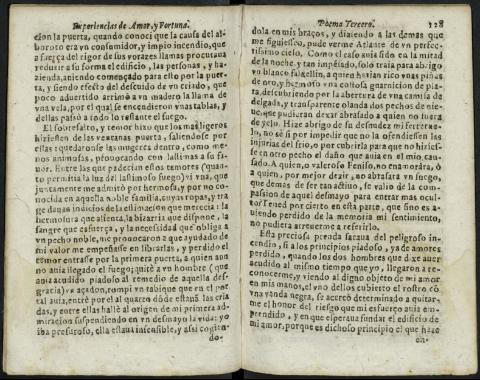 Experiencias de Amor, y Fortuna.
con la puerta, quando conoci que la causa del al-
boroto era vn consumidor, y impio incendio, que
a fuerça del rigor de sus vorazes llamas procuraua
reducir a su forma el edificio, las personas, y ha-
zienda, auiendo començado para esto por la puer-
ta, y siendo efecto del descuido de vn criado, que
poco aduertido arrimò a vn madero la llama de
vna vela, por el qual se encendieron vnas tablas, y
dellas passò a todo lo restante el fuego.
El sobresalto, y temor hizo que los mas ligeros
hiziessen de las ventanas puerta, saliendose por
ellas: quedaronse las mugeres dentro, como me-
nos animosas, prouocando con lastimas a su fa-
uor. Entre las que padecian estos temores (quan-
to permitia la luz del lastimoso fuego) vi vna, que
juntamente me admirò por hermosa, y por no co-
nocida en aquella noble familia, cuyas ropas, y tra-
ge dauan indicios de la estimacion que merecia: la
hermosura que alienta, la bizarria que dispone, la
sangre que esfuerça, y la necessidad que obliga a
vn pecho noble, me prouocaron a que ayudado de
mi valor me empeñasse en librarlas, y perdido el
temor entrasse por la primera puerta, a quien aun
no auia llegado el fuego; quitè a vn hombre (que
auia acudido piadoso al remedio de aquella des-
gracia) vn açadon, rompi vn tabique que en el por-
tal auia, entrè por el al quarto dòde estauã las cria
das, y entre ellas hallè al origen de mi primera ad-
miracion suspendiendo en vn desmayo la vida: yo
iba presuroso, ella estaua insensible, y assi cogien-
do-
Poema Tercero. 128
dola en mis braços, y diziendo a las demas que
me siguiessen, pude verme Atlante de vn perfec-
tissimo cielo. Como el caso auia sido en la mitad
de la noche, y tan impēsado, solo traia para abrigo
vn blanco faldellin, a quien hazian rico vnas
de oro, y hermoso vna costosa guarnicion de pla-
ta, descubriendo por la abertura de vna camisa de
delgada, y transparente olanda dos pechos de nie-
ue, que pudieran dexar abrasado a quien no fuera
de yelo. Hize abrigo de su desnudez mi ferreruc-
lo, no sè si por impedir que no la ofendiessen las
injurias del frio, o por cubrirla para que no hizies-
se en otro pecho el daño que auia en el mio cau-
sado. A quien, o valeroso Feniso, no enamorára, ò
a quien, por mejor dezir, no abrasára vn fuego,
que demas de ser tan actiuo, se valio de la com-
passion de aquel desmayo para entrar mas ocul-
to? Tened por cierto en esta parte, que sino es a-
uiendo perdido de la memoria mi sentimiento,
no pudiera atreuerme a referirlo.
Esta preciosa prenda sacaua del peligroso in-
cendio, si a los principios piadoso, ya de amores
perdido, quando los dos hombres que dixe auer
acudido al mismo tiempo que yo, llegaron a re-
conocerme, y viendo al digno objeto de mi amor
en mis manos, el vno dellos cubierto el rostro cō
vna vanda negra, se acercò determinado a quitar-
me el honor del riesgo que mi esfuerço auia em-
prendido, y en que esperaua fundar el edificio de
mi amor, porque es dichoso principio el que haze
en-